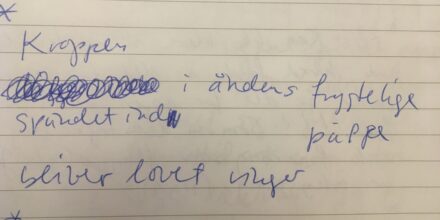 *
Kroppen
i åndens frygtelige
spundet ind
puppe
bliver lovet vinger
*